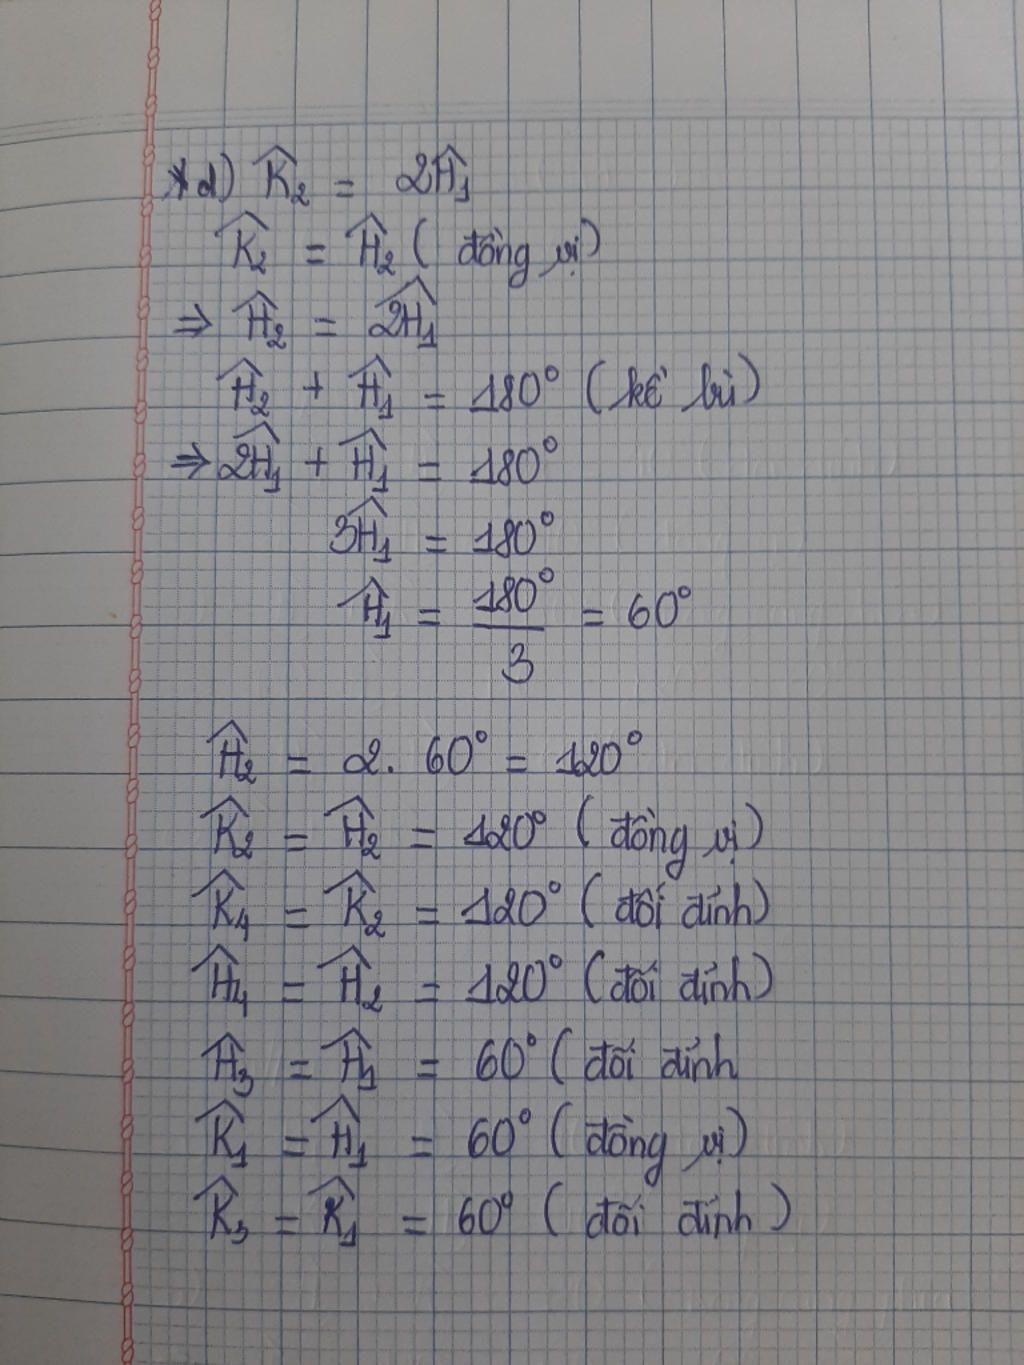 * d) K̂₂ = 2Ĥ₁
K̂₂ = Ĥ₂ ( đồng vị)
⇒ Ĥ₂ = 2Ĥ₁
Ĥ₂ + Ĥ₁ = 180° ( kề bù)
⇒ 2Ĥ₁ + Ĥ₁ = 180°
3Ĥ₁ = 180°
Ĥ₁ = 180°/3 = 60°
Ĥ₂ = 2. 60° = 120°
K̂₂ = Ĥ₂ = 120° ( đồng vị)
K̂₄ = K̂₂ = 120° ( đối đỉnh)
Ĥ₄ = Ĥ₂ = 120° (đối đỉnh)
Ĥ₃ = Ĥ₁ = 60° ( đối đỉnh
K̂₁ = Ĥ₁ = 60° ( đồng vị)
K̂₃ = K̂₁ = 60° ( đối đỉnh )